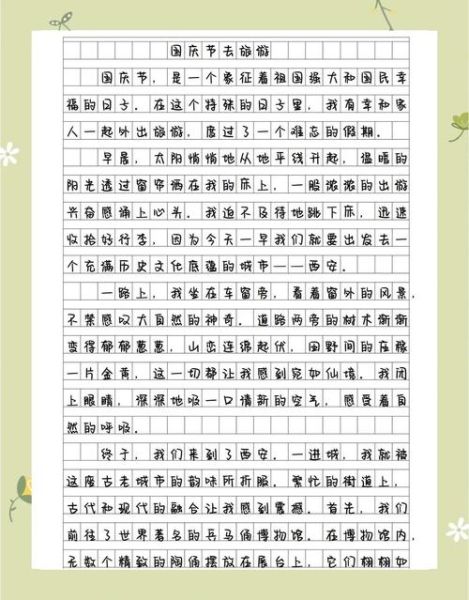 国庆节去旅游
国庆节，是一个象征着祖国强大和国民幸
福的日子。在这个特殊的日子里，我有幸和家
人一起外出旅游，度过了一个难忘的假期。
早晨，太阳悄悄地从地平线升起，温暖的
阳光透过窗帘洒在我的床上，一股浓浓的出游
兴奋感涌上心头。我迫不及待地跳下床，迅速
收拾好行李，因为今天一早我们就要出发去一
个充满历史文化底蕴的城市——西安。
一路上，我坐在车窗旁，看着窗外的风景，
不禁感叹大自然的神奇。道路两旁的树木渐渐
变得郁郁葱葱，山峦连绵起伏，田野间的庄稼
一片金黄，这一切都让我感到宛如仙境。我闭
上眼睛，深深地吸一口清新的空气，感受着自
然的呼吸。
终于，我们来到了西安。一进城，我就被
这座古老城市的韵味所折服。繁忙的街道上，
古代和现代的融合让我感到震撼。首先，我们
前往了世界著名的兵马俑博物馆。在博物馆内，
无数个精致的陶俑摆放在展台上，它们栩栩如